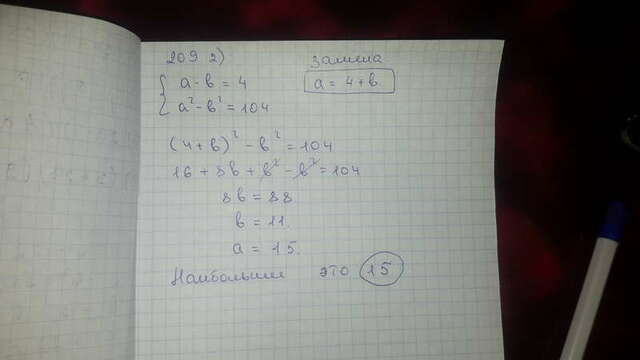 209 2) замена
{ a - b = 4 a = 4 + b
a² - b² = 104
(4 + b)² - b² = 104
16 + 8b + b² - b² = 104
8b = 88
b = 11.
a = 15.
Наибольшии это 15